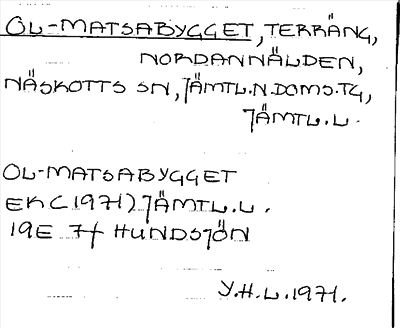 OL-MATSABYGGET, TERRÄNG,
NORDANNÄLDEN,
NÄSKOTTS SN, JÄMTL.N.DOMS.TG,
JÄMTL.L.
OL-MATSABYGGET
EK (1971) JÄMTL.L.
19E 7f HUNDSJÖN
Y.H.L.1971.